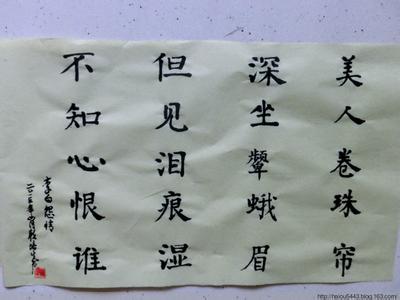 美人卷珠帘
深坐颦蛾眉
但见泪痕湿
不知心恨谁
李白怨情
http://haiou5443.blog.163.com/